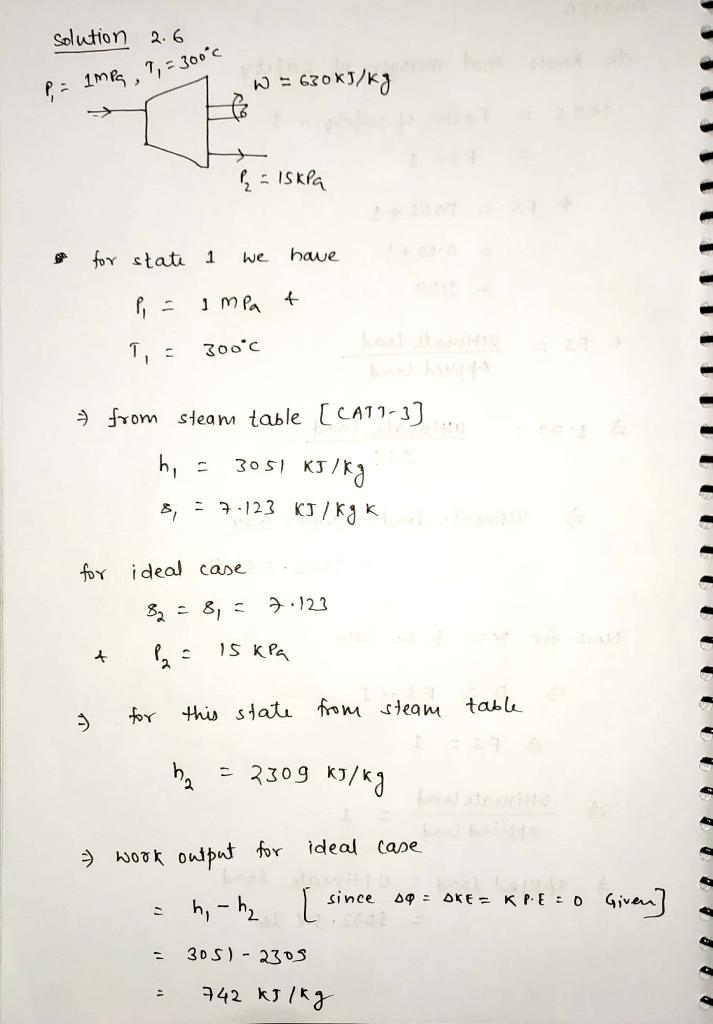 solution 2.6
P₁ = 1MPa, T₁ = 300°C
W = 630KJ/kg
P₂ = 15KPa
for state 1 we have
P₁ = 1 MPa +
T₁ = 300°C
⇒ from steam table [CATT-3]
h₁ = 3051 KJ/kg
s₁ = 7.123 KJ/kg K
for ideal case
s₂ = s₁ = 7.123
+ P₂ = 15 KPa
⇒ for this state from steam table
h₂ = 2309 KJ/kg
⇒ work output for ideal case
= h₁ - h₂ [since ΔQ = ΔKE = K P.E = 0 Given]
= 3051 - 2309
= 742 KJ/kg